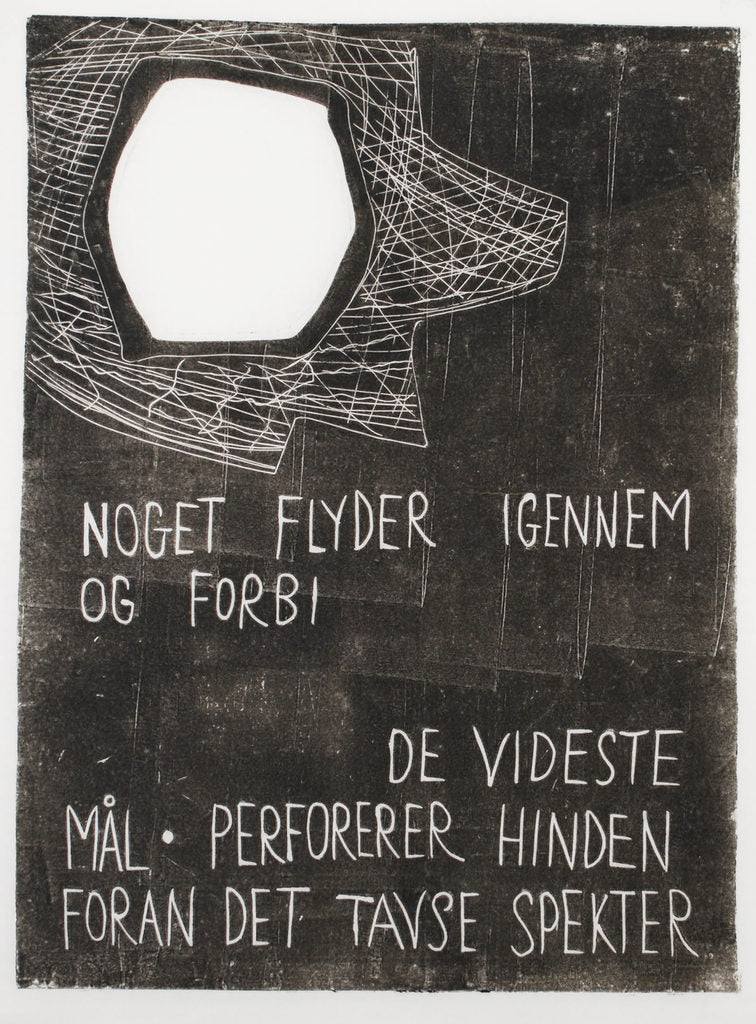 NOGET FLYDER IGENNEM
OG FORBI
DE VIDESTE
MÅL • PERFORERER HINDEN
FORAN DET TAVSE SPEKTER